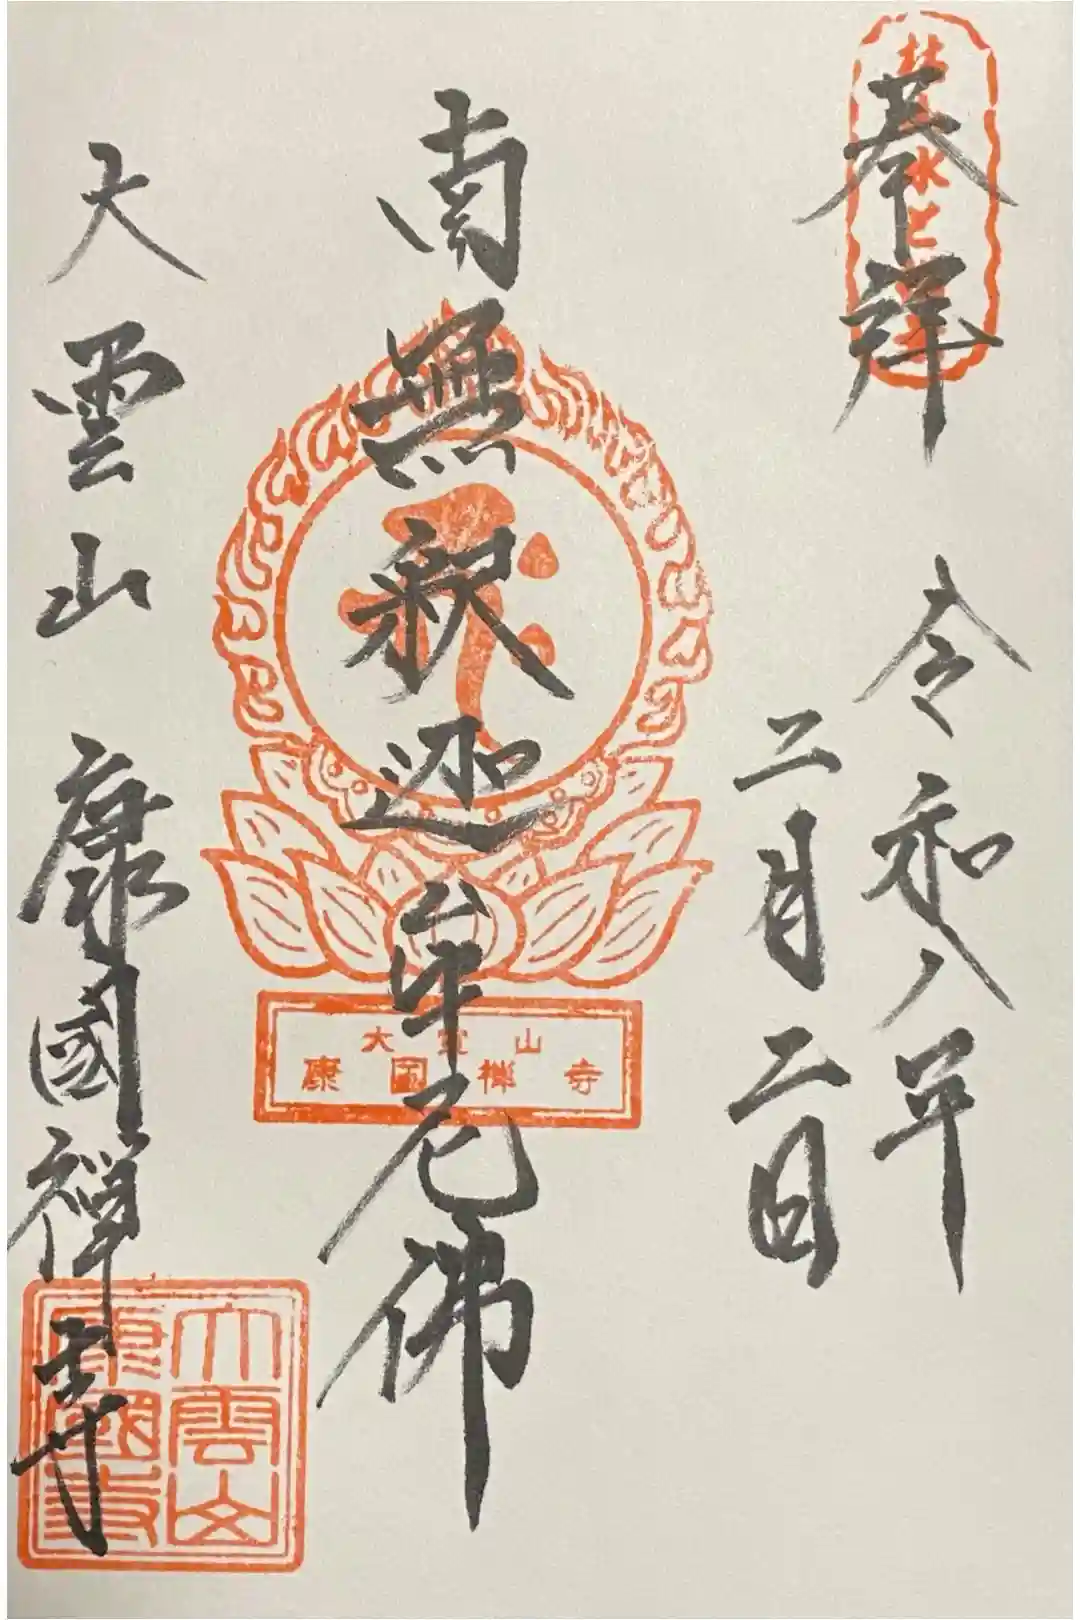 奉拝
令和八年
二月二日
南無釈迦牟尼佛
大雲山 康國禅寺
大雲山
康国禅寺
大雲山
康國寺